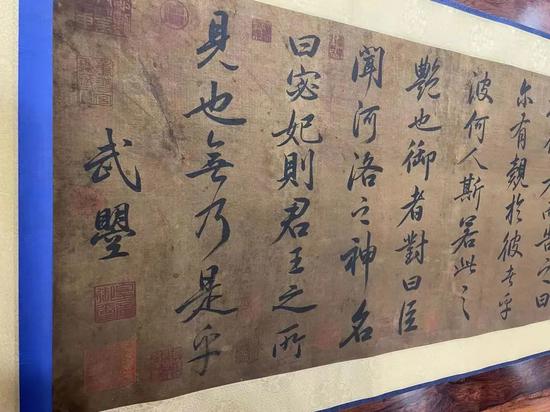 而告之曰
尔有覿於彼者乎
彼何人斯若此之
艷也御者對曰臣
聞河洛之神名
曰宓妃則君王之所
見也無乃是乎
武曌